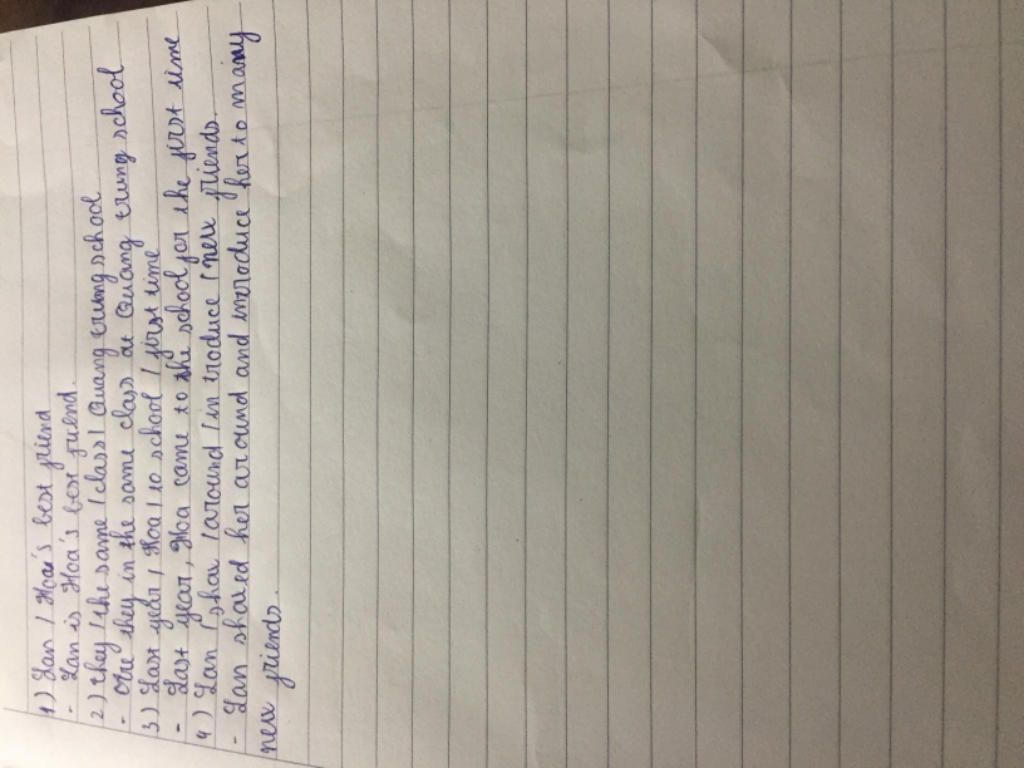 1) Lan / Hoa's best friend
- Lan is Hoa's best friend.
2) they / the same / class / Quang trung school
- Are they in the same class at Quang trung school
3) Last year / Hoa / to school / first time
- Last year, Hoa came to the school for the first time
4) Lan / shar / around / in troduce / new friends.
- Lan shared her around and introduce her to many
new friends.